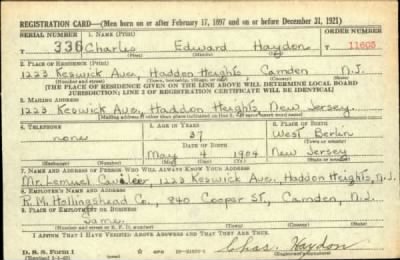 REGISTRATION CARD—(Men born on or after February 17, 1897 and on or before December 31, 1921)
SERIAL NUMBER 1. NAME (Print) ORDER NUMBER
T 336 Charles Edward Haydon 11605
(First) (Middle) (Last)
2. PLACE OF RESIDENCE (Print)
1223 Keswick Ave, Haddon Heights, Camden N.J.
(Number and street) (Town, township, village, or city) (County) (State)
[THE PLACE OF RESIDENCE GIVEN ON THE LINE ABOVE WILL DETERMINE LOCAL BOARD
JURISDICTION; LINE 2 OF REGISTRATION CERTIFICATE WILL BE IDENTICAL]
3. MAILING ADDRESS
1223 Keswick Ave, Haddon Heights, New Jersey.
[Mailing address if other than place indicated on line 2. If same insert word same]
4. TELEPHONE 5. AGE IN YEARS 6. PLACE OF BIRTH
none 37 West Berlin
DATE OF BIRTH (Town or county)
May 4 1904 New Jersey
(Exchange) (Number) (Mo.) (Day) (Yr.) (State or country)
7. NAME AND ADDRESS OF PERSON WHO WILL ALWAYS KNOW YOUR ADDRESS
Mr. Lemuel 1223 Keswick Ave, Haddon Heights, N.J.
8. EMPLOYER'S NAME AND ADDRESS
R. M. Hollingshead Co., 840 Cooper St, Camden, N.J.
9. PLACE OF EMPLOYMENT OR BUSINESS
Same
(Number and street or R. F. D. number) (Town) (County) (State)
I AFFIRM THAT I HAVE VERIFIED ABOVE ANSWERS AND THAT THEY ARE TRUE.
D. S. S. Form 1 Chas. Haydon
(Registrant's signature)